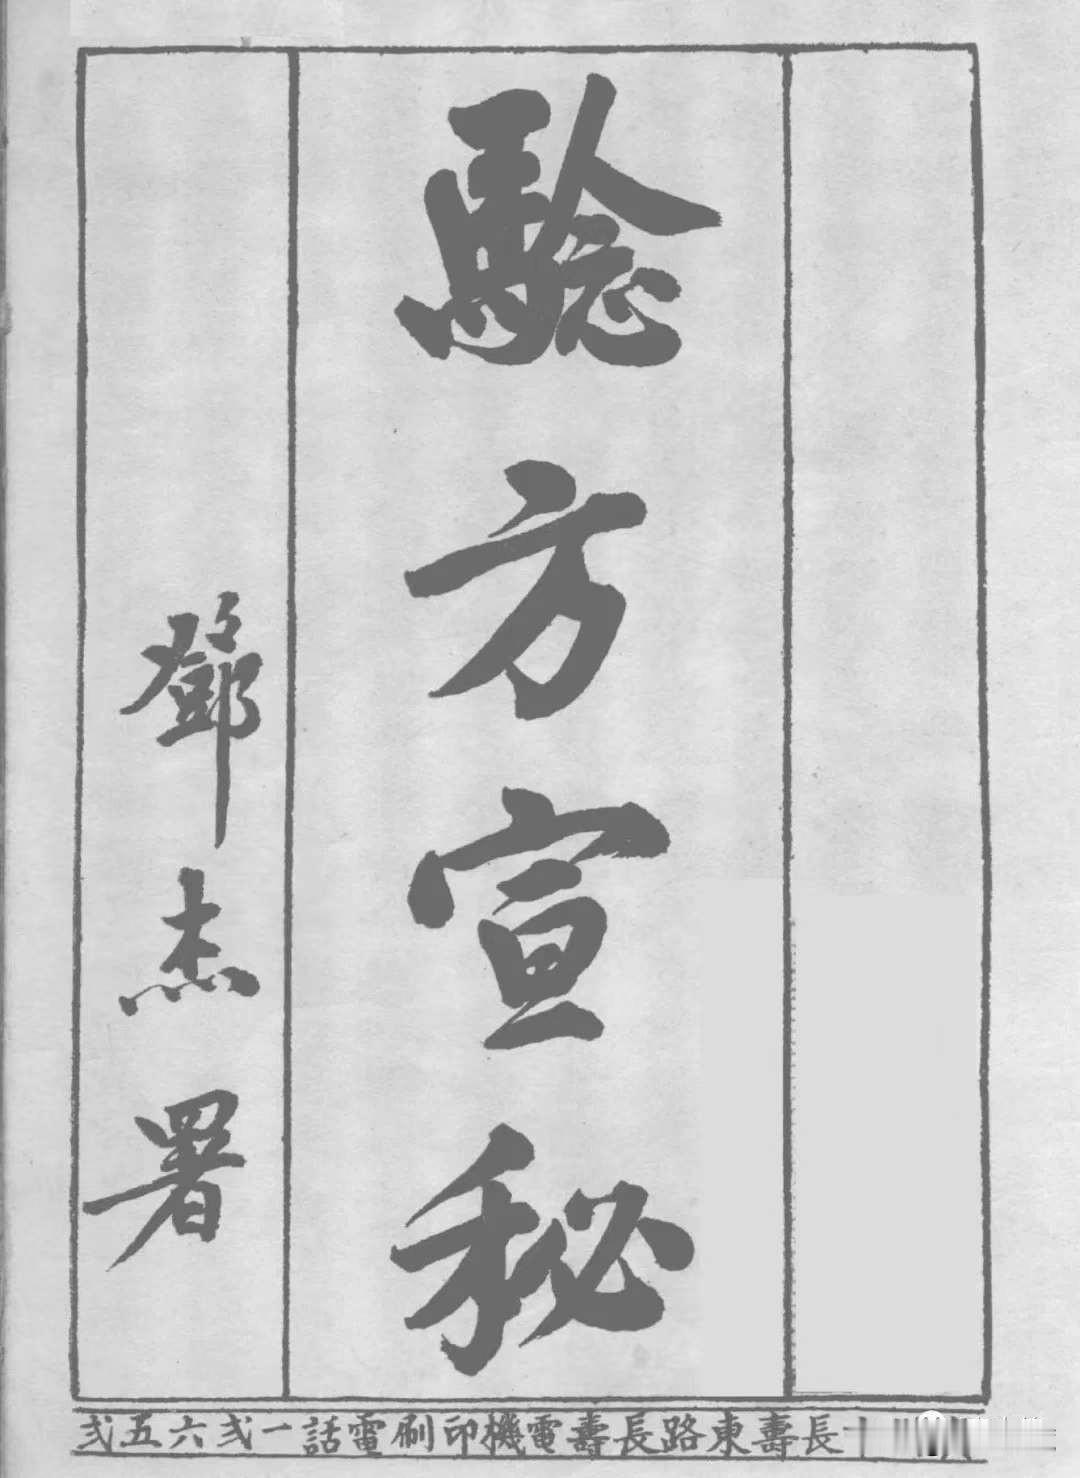 騐方宣秘
鄧杰署
長壽東路長壽電機印刷電話一弍六五弍